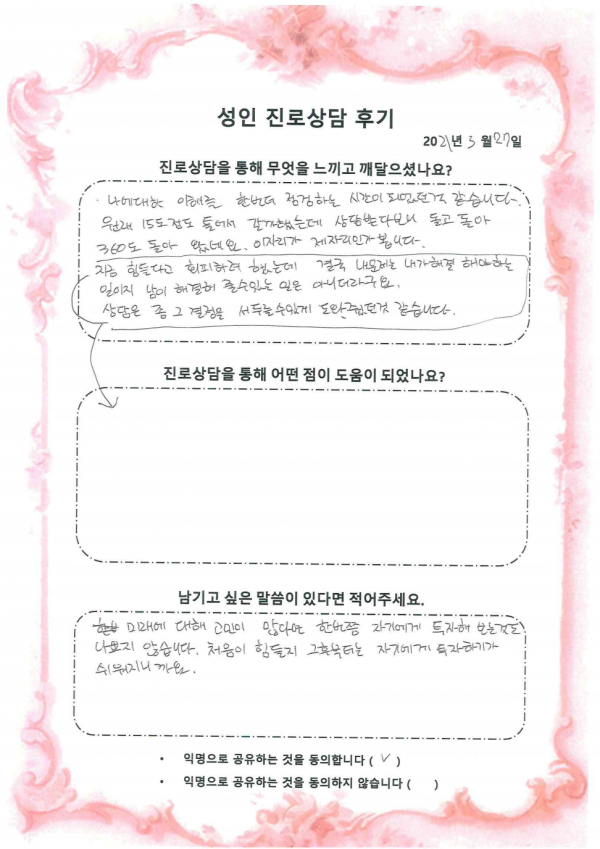 성인 진로상담 후기
2021년 3월 27일
진로상담을 통해 무엇을 느끼고 깨달으셨나요?
· 나에대한 이해를 한번더 점검하는 시간이 되었던것 같습니다.
원래 15도정도 틀어서 갈까했는데 상담받다보니 돌고 돌아
360도 돌아 왔네요. 이자리가 제자리인가 봅니다.
지금 힘들다고 회피하려 했는데 결국 내문제는 내가해결 해야하는
일이지 남이 해결해 줄수있는 일은 아니더라구요.
상담은 좀 그 결정을 서두를수있게 도와주었던것 같습니다.
진로상담을 통해 어떤 점이 도움이 되었나요?
남기고 싶은 말씀이 있다면 적어주세요.
미래에 대해 고민이 많다면 한번쯤 자기에게 투자해 보는것도
나쁘지 않습니다. 처음이 힘들지 그후부터는 자기에게 투자하기가
쉬워지니 까요.
• 익명으로 공유하는 것을 동의합니다 ( ✓ )
• 익명으로 공유하는 것을 동의하지 않습니다 ( )